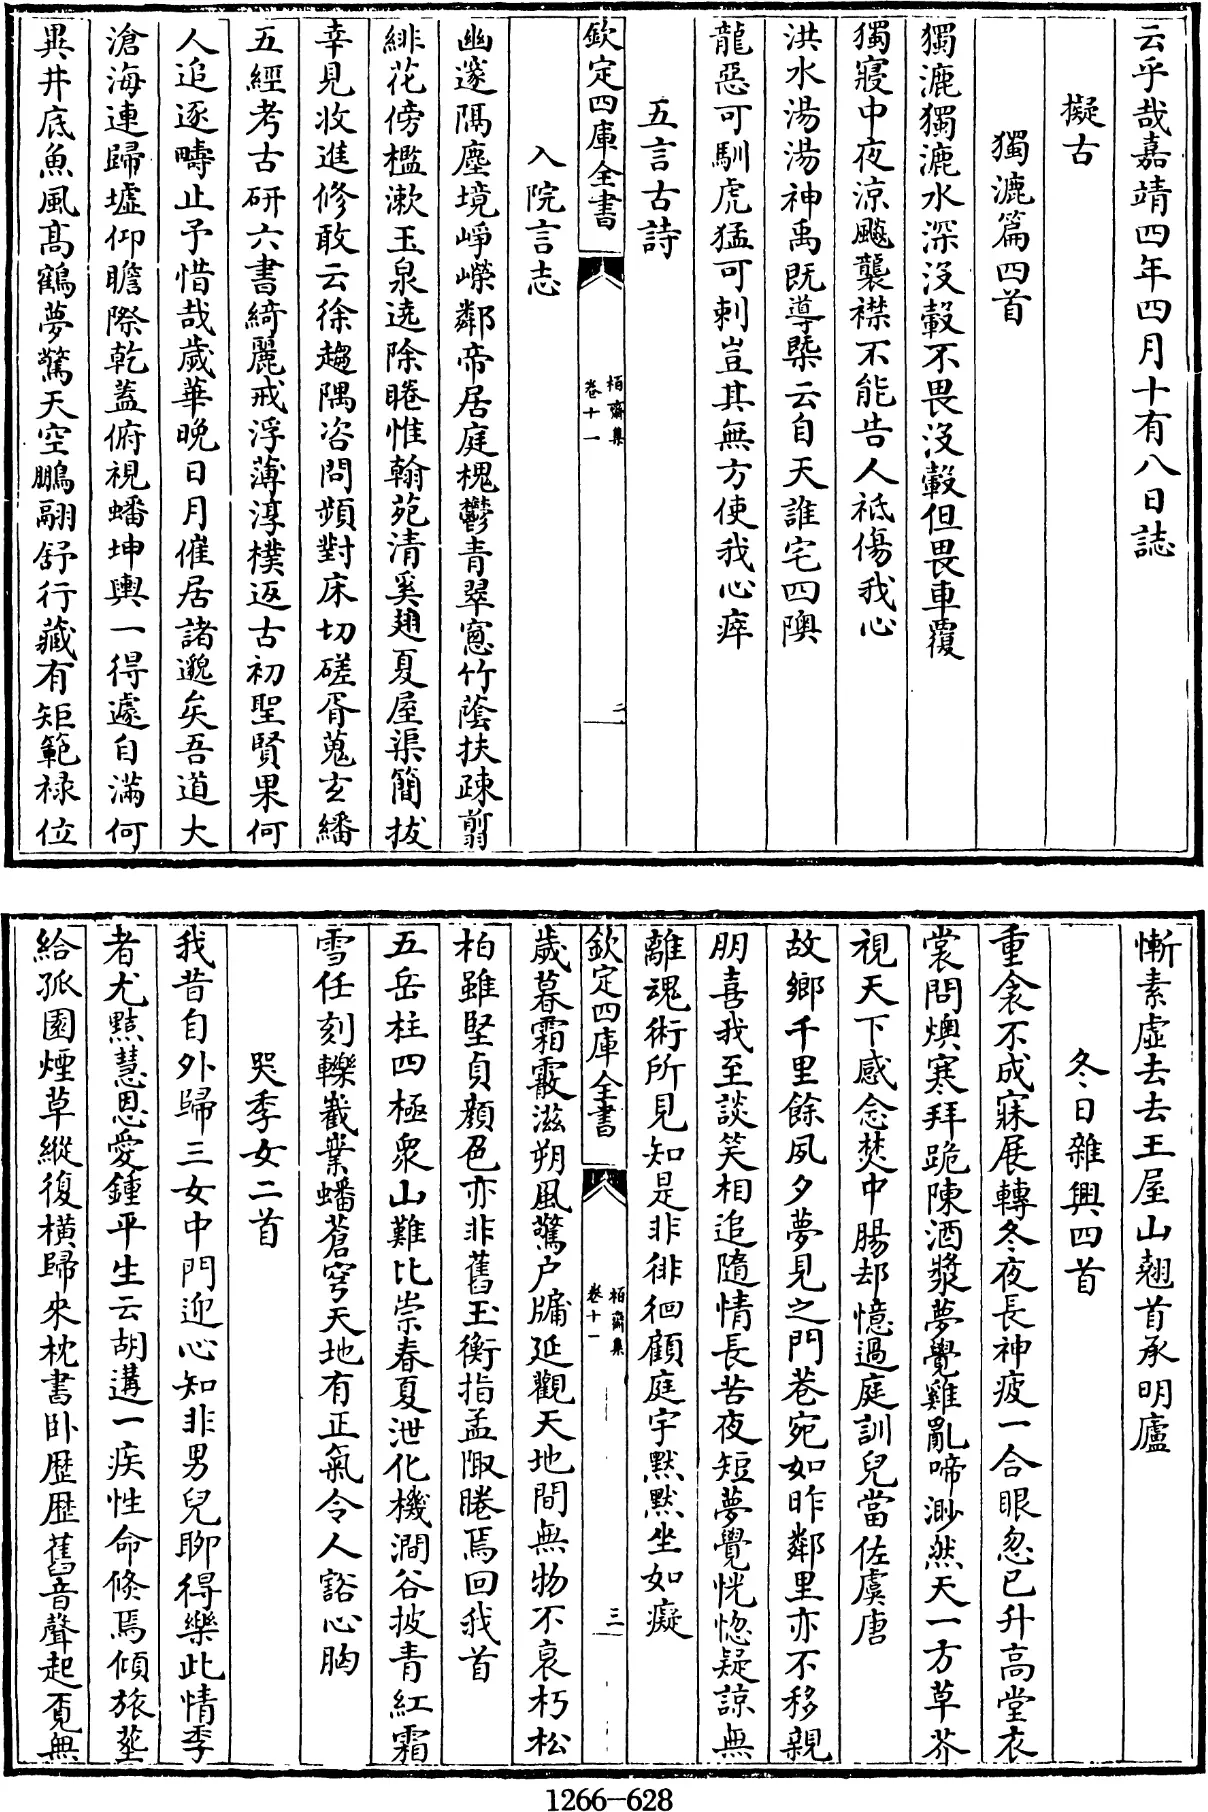 云乎哉嘉靖四年四月十有八日誌
擬古
獨漉篇四首
獨漉獨漉水深沒轂不畏沒轂但畏車覆
獨寢中夜涼飈襲襟不能告人祗傷我心
洪水湯湯神禹既導槩云自天誰宅四隩
龍惡可馴虎猛可刺豈其無方使我心瘁
五言古詩
欽定四庫全書
栢齋集
卷十一
二
入院言志
幽邃隔塵境崢嶸鄰帝居庭槐鬱青翠窻竹蔭扶疎翦
緋花傍檻漱玉泉遶除睠惟翰苑清奚翅夏屋渠簡拔
幸見收進修敢云徐趨隅咨問頻對床切磋胥蒐玄繙
五經考古研六書綺麗戒浮薄淳樸返古初聖賢果何
人追逐疇止予惜哉歲華晚日月催居諸邈矣吾道大
滄海連歸墟仰瞻際乾蓋俯視蟠坤輿一得遽自滿何
異井底魚風髙鶴夢驚天空鵬翮舒行藏有矩範祿位
慚素虛去去王屋山翹首承明廬
冬日雜興四首
重衾不成寐展轉冬夜長神疲一合眼忽已升高堂衣
裳問燠寒拜跪陳酒漿夢覺雞亂啼渺然天一方草芥
視天下感念焚中腸却憶過庭訓兒當佐虞唐
故鄉千里餘夙夕夢見之門巷宛如昨鄰里亦不移親
朋喜我至談笑相追隨情長苦夜短夢覺恍惚疑諒無
離魂術所見知是非徘徊顧庭宇默默坐如癡
欽定四庫全書
栢齋集
卷十一
三
歲暮霜霰滋朔風驚户牖延觀天地間無物不衰朽松
柏雖堅貞顏色亦非舊玉衡指孟陬睠焉回我首
五岳柱四極衆山難比崇春夏泄化機澗谷披青紅霜
雪任刻轢嶻嶪蟠蒼穹天地有正氣令人豁心胸
哭季女二首
我昔自外歸三女中門迎心知非男兒聊得樂此情季
者尤黠慧恩愛鍾平生云胡遘一疾性命倐焉傾旅塟
給孤園煙草縱復橫歸來枕書卧歴歴舊音聲起覔無
1266-628